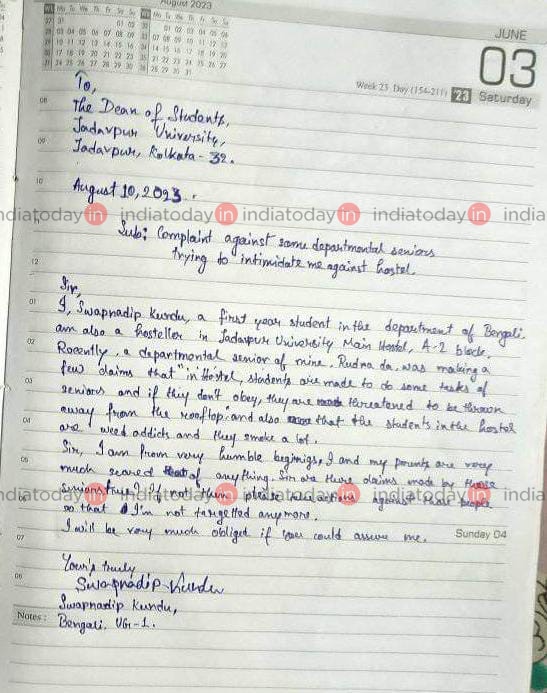 August 2023
JUNE
03
Week 23 Day (154-211) 23 Saturday
To,
The Dean of Students,
Jadavpur University,
Jadavpur, Kolkata - 32.
August 10, 2023.
indiatoday in indiatoday in indiatoday in indiatoday in india
Sub: Complaint against some departmental seniors
trying to intimidate me against hostel.
Sir,
I, Swapnadip Kundu, a first year student in the department of Bengali.
am also a hosteller in Jadavpur University Main Hostel, A-2 block.
Recently, a departmental senior of mine, Rudra da, was making a
few claims that "in Hostel, students are made to do some tasks of
seniors and if they don't obey, they are threatened to be thrown
away from the rooftop" and also that the students in the hostel
are weed addicts and they smoke a lot.
Sir, I am from very humble beginigs, I and my parents are very
much scared of anything. Sir are these claims made by those
seniors true? If not then please take action against those people
so that I'm not targetted anymore.
I will be very much obliged if you could assure me.
Sunday 04
Your's truly
Swapnadip Kundu
Swapnadip Kundu,
Bengali, UG-1.
Notes: